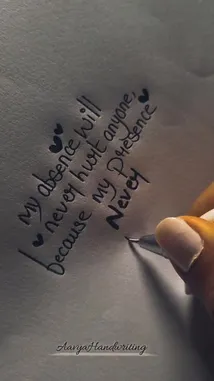 My absence will
never hurt anyone,
because my Presence
Never
AaryaHandwriting